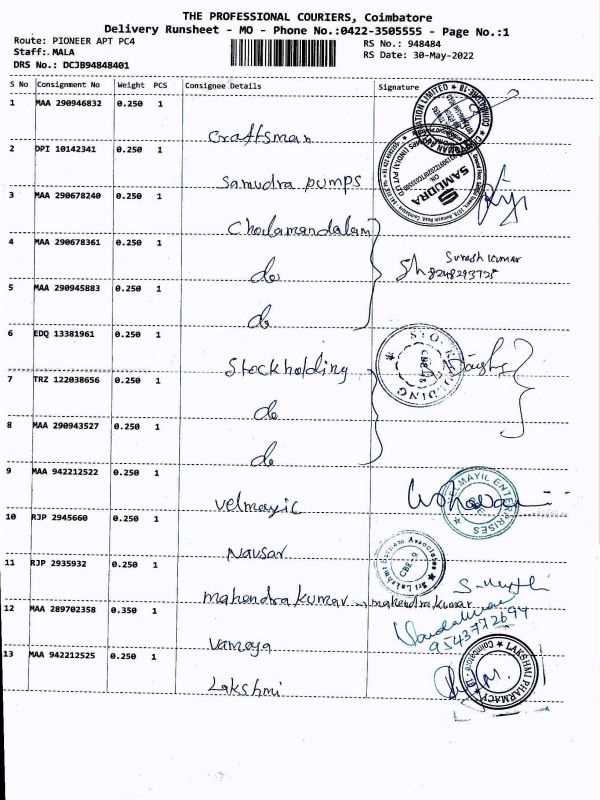 THE PROFESSIONAL COURIERS, Coimbatore
Delivery Runsheet - MO - Phone No.:0422-3505555 - Page No.:1
Route: PIONEER APT PC4
RS No.: 948484
Staff: MALA
RS Date: 30-May-2022
DRS No.: DCJB94848401
S No Consignment No Weight PCS Consignee Details Signature
1 MAA 290946832 0.250 1
Craftsman
2 DPI 10142341 0.250 1
Samudra pumps
SAMUDRA
3 MAA 290678240 0.250 1
Cholamandalam
4 MAA 290678361 0.250 1
do
Suresh kumar
8248293725
5 MAA 290945883 0.250 1
do
6 EDQ 13381961 0.250 1
Stockholding
7 TRZ 122038656 0.250 1
do
8 MAA 290943527 0.250 1
do
9 MAA 942212522 0.250 1
velmayil
VELMAYIL ENTERPRISES
10 RJP 2945660 0.250 1
Navsar
Associates
CBE-9
11 RJP 2935932 0.250 1
mahendra kumar mahendra kumar
12 MAA 289702358 0.350 1
Vamaya
9543772694
13 MAA 942212525 0.250 1
Lakshmi
LAKSHMI PHARMACY